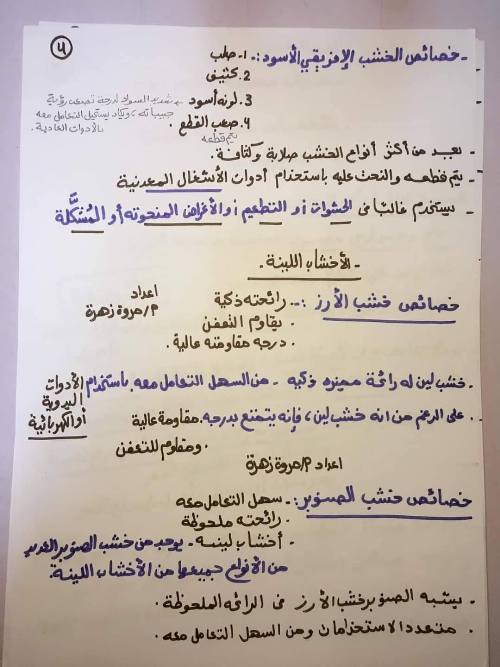 ٤
- خصائص الخشب الإفريقي الأسود :- ١- صلب
٢. كثيف
٣. لونه أسود ← شديد السواد لدرجة تصعب رؤية
حبيباته، ويكاد يستحيل التعامل معه
بالأدوات العادية.
٤. صعب القطع.
يتم قطعه
- يعد من أكثر أنواع الخشب صلابة وكثافة.
- يتم قطعه والنحت عليه باستخدام أدوات الأشغال المعدنية
- يستخدم غالباً في الحشوات أو التطعيم أو الأغراض المنحوتة أو المُشكَّلة
- الأخشاب اللينة.
خصائص خشب الأرز :- . رائحته ذكية
. يقاوم التعفن
. درجه مقاومته عالية.
اعداد
م/مروة زهرة
. خشب لين له رائحة مميزه ذكيه - من السهل التعامل معه باستخدام الأدوات
اليدوية
أو الكهربائية
. على الرغم من انه خشب لين، فإنه يتمتع بدرجه مقاومة عالية
. ومقاوم للتعفن
اعداد م/مروة زهرة
خصائص خشب الصنوبر :- سهل التعامل معه
. رائحته ملحوظة
. أخشاب لينه - يوجد من خشب الصنوبر العديد
من الأنواع جميعها من الأخشاب اللينة.
. يشبه الصنوبر خشب الأرز في الرائحه الملحوظة.
. متعدد الاستخدامات ومن السهل التعامل معه.